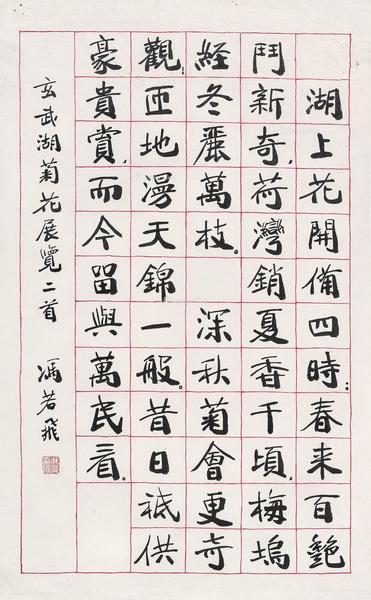 湖上花開備四時；春来百艷
鬥新奇，荷灣銷夏香千頃，梅塢
經冬麗萬枝。 深秋菊會更奇
觀，匝地漫天錦一般。昔日祇供
豪貴賞，而今留與萬民看。
玄武湖菊花展覽二首 馮若飛